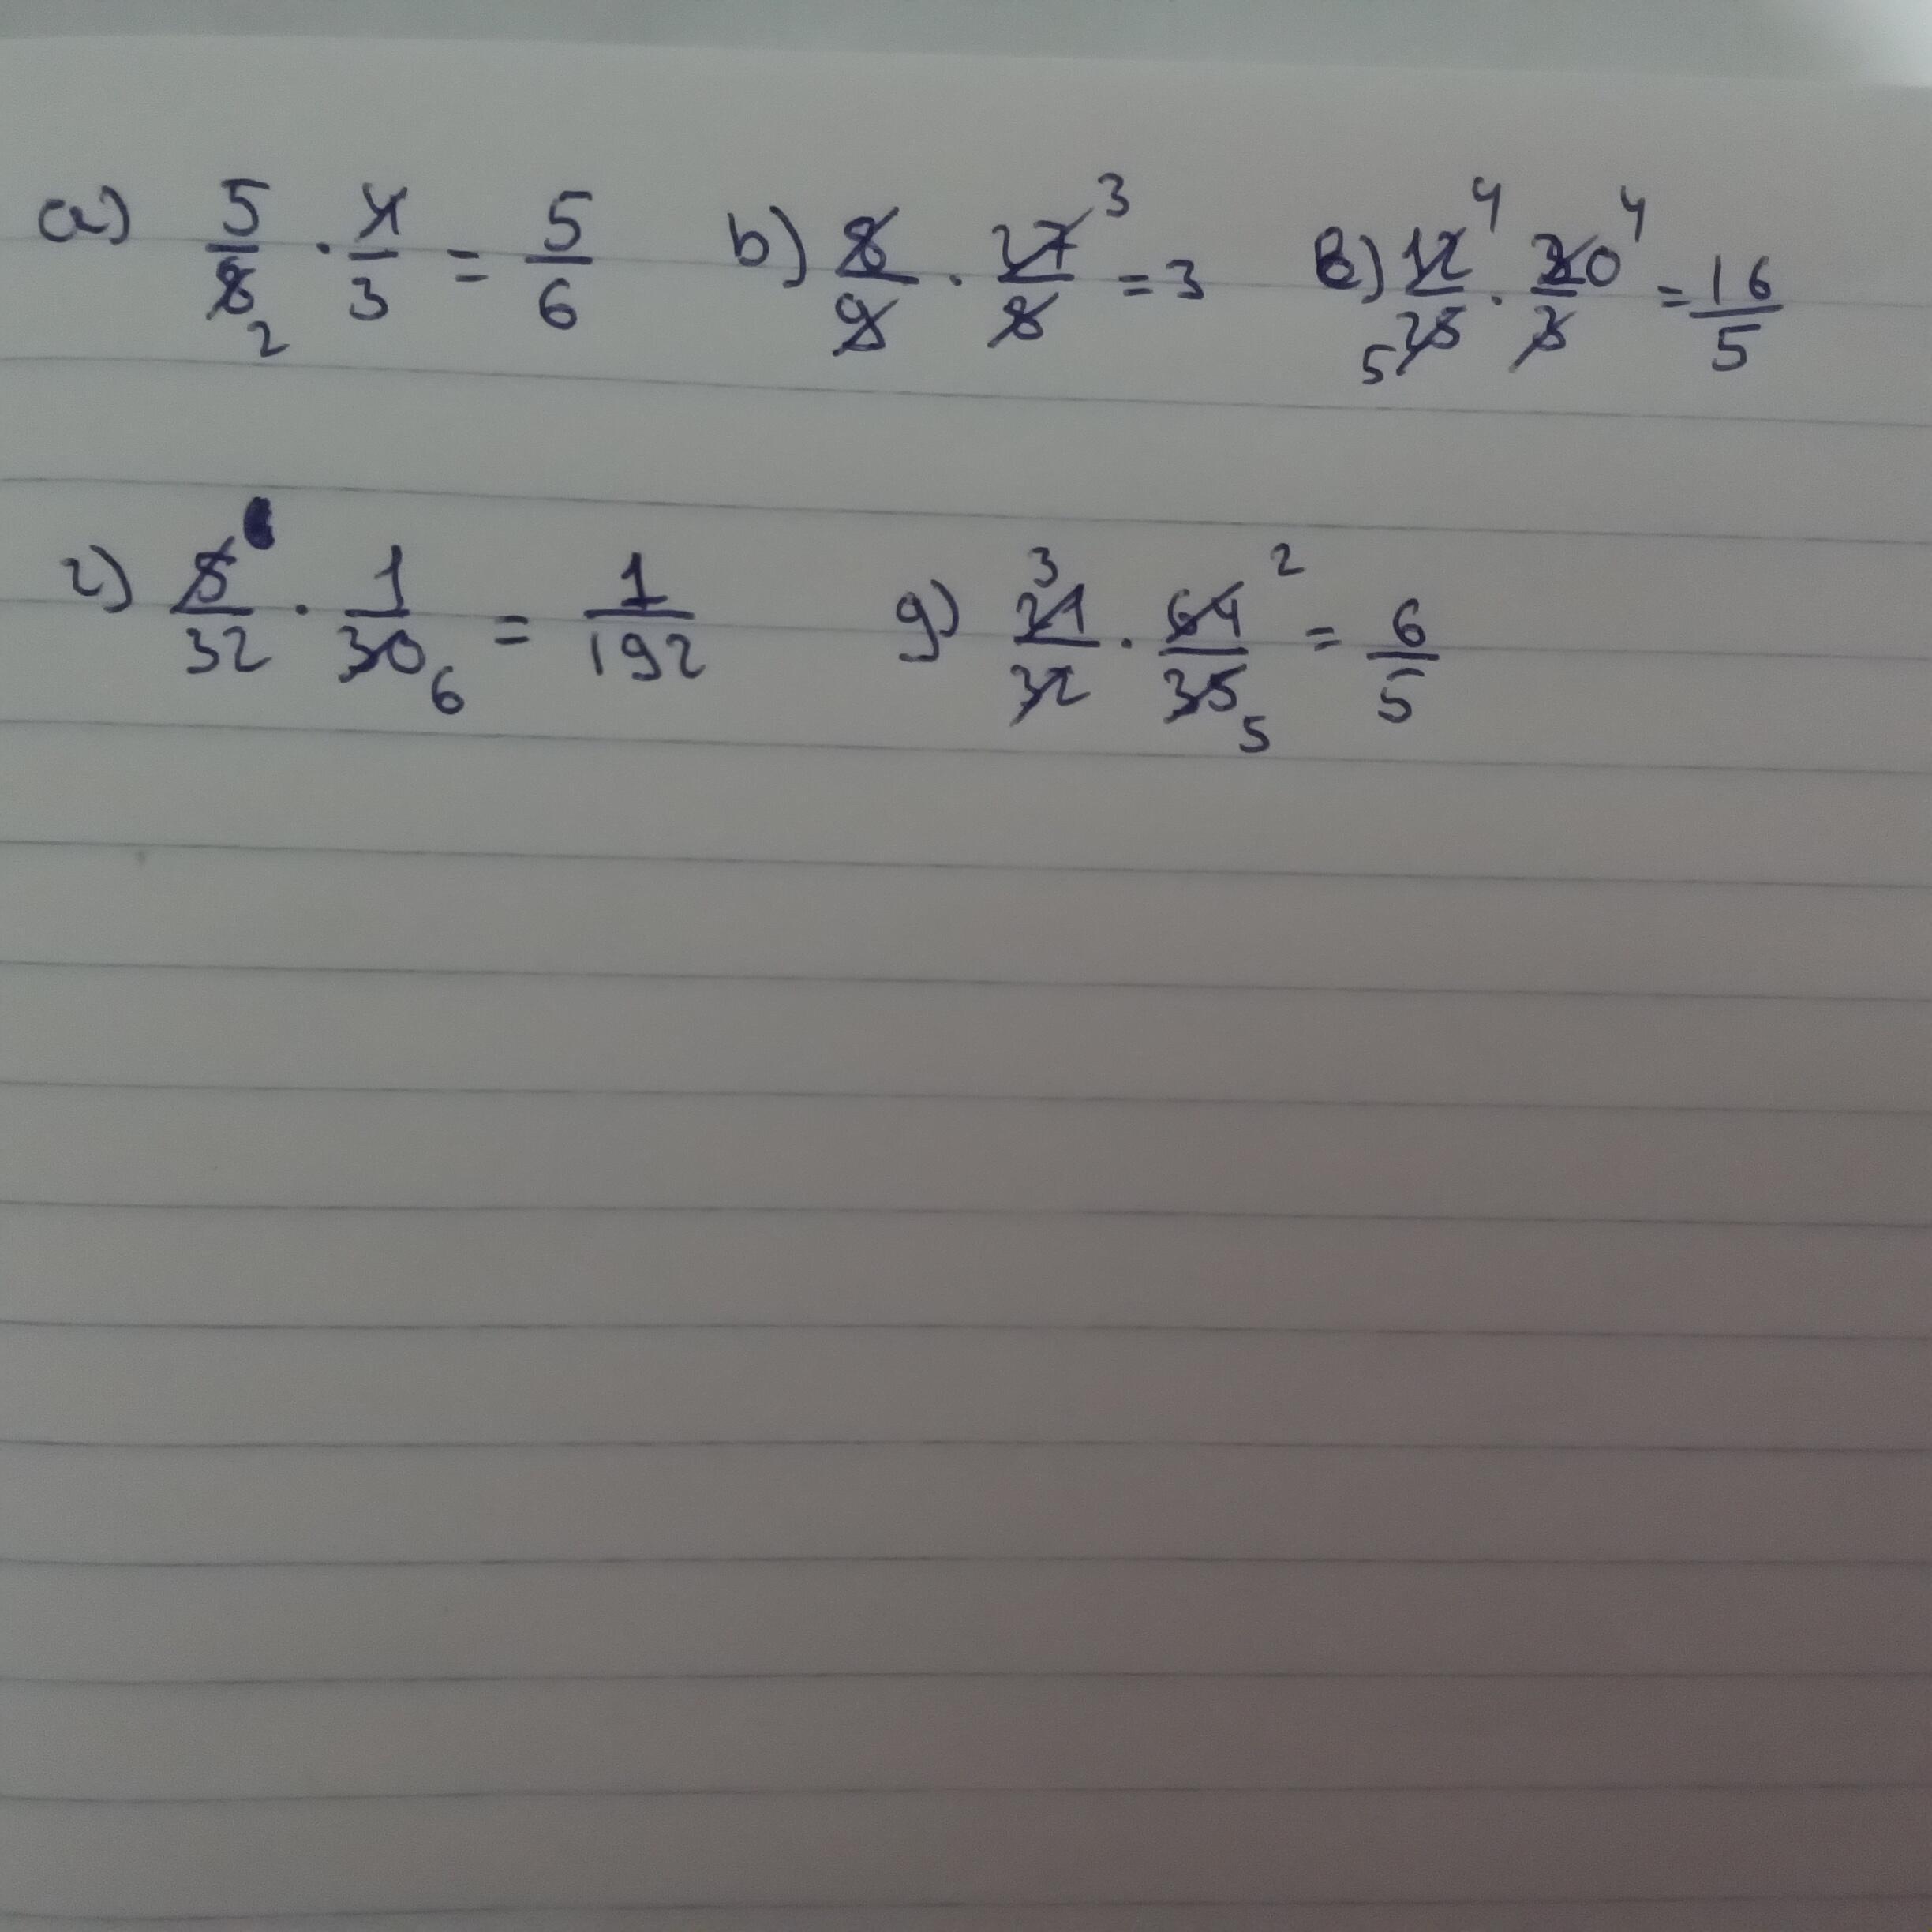 а) 5/8 2 · 4/3 = 5/6 b) 8/9 · 27 3/8 = 3 в) 12 4/5 25 · 20 4/3 = 16/5
г) 5/32 · 1/30 6 = 1/192 g) 3 21/32 · 64 2/35 5 = 6/5